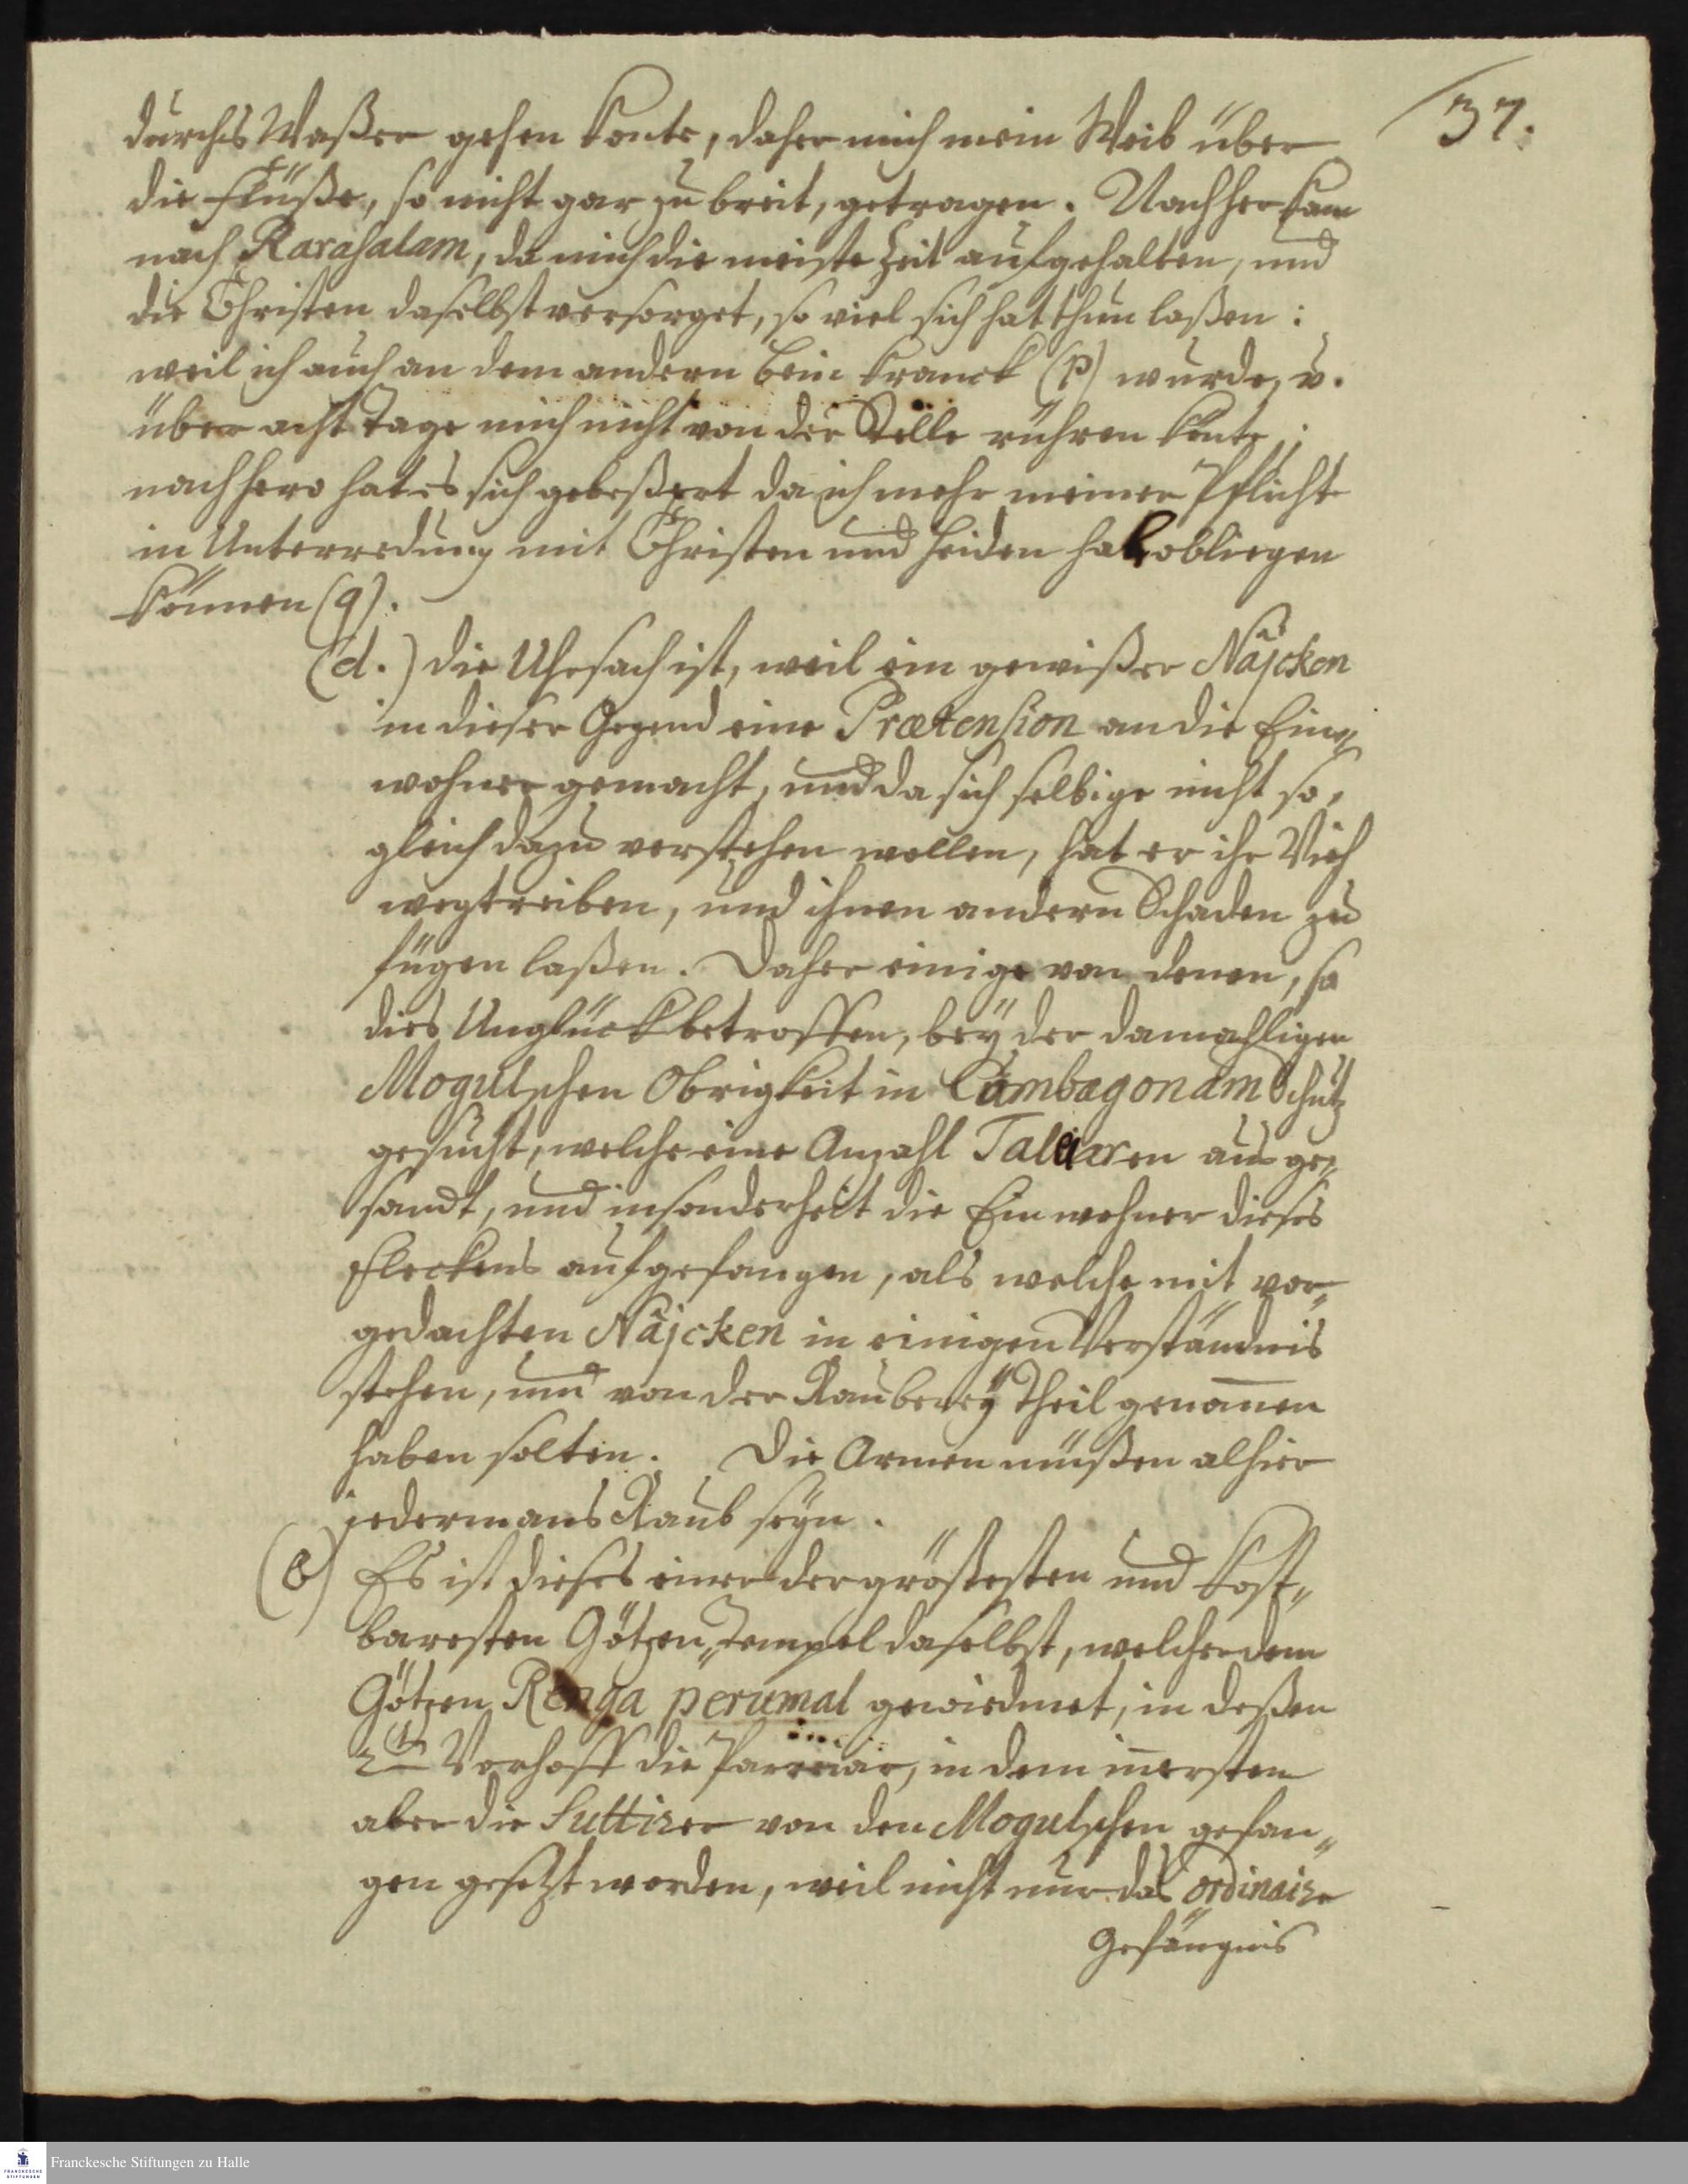 37.
durchs Waßer gehen konte, daher mich mein Weib über
die Flüße, so nicht gar zu breit, getragen. Nachher kam
nach Rarahalam, da mich die meiste Zeit aufgehalten, und
die Christen daselbst versorget, so viel sich hat thun laßen:
weil ich auch an dem andern Bein kranck (p) wurde, u.
über acht Tage mich nicht von der Stelle rühren konte;
nachhero hat es sich gebeßert da ich mehr meiner Pflicht
in Unterredung mit Christen und Heiden hab obliegen
können (q).
(d.) die Uhrsach ist, weil ein gewißer Näjcken
in dieser Gegend eine Prætension an die Ein„
wohner gemacht, und da sich selbige nicht so„
gleich dazu verstehen wollen, hat er ihr Vieh
wegtreiben, und ihnen andern Schaden zu
fügen laßen. Daher einige von denen, so
dies Unglück betroffen, bey der damahligen
Mogulschen Obrigkeit in Cumbagonam Schutz
gesucht, welche eine Anzahl Taliaren ausge„
sandt, und insonderheit die Einwohner dieses
Fleckens aufgefangen, als welche mit vor„
gedachten Näjcken in einigen Verständnis
stehen, und von der Rauberey Theil genom̅en
haben solten. Die Armen müßen alhier
jedermans Raub seyn.
(e) Es ist dieses einer der größesten und kost„
baresten Götzen„Tempel daselbst, welcher dem
Götzen Renga perumal gewiedmet, in deßen
2ten Vorhoff die Parreiar, in dem in̅ersten
aber die Suttirer von den Mogulschen gefan„
gen gesetzt worden, weil nicht nur das ordinaire
Gefängnis
FRANCKESCHE STIFTUNGEN
Franckesche Stiftungen zu Halle